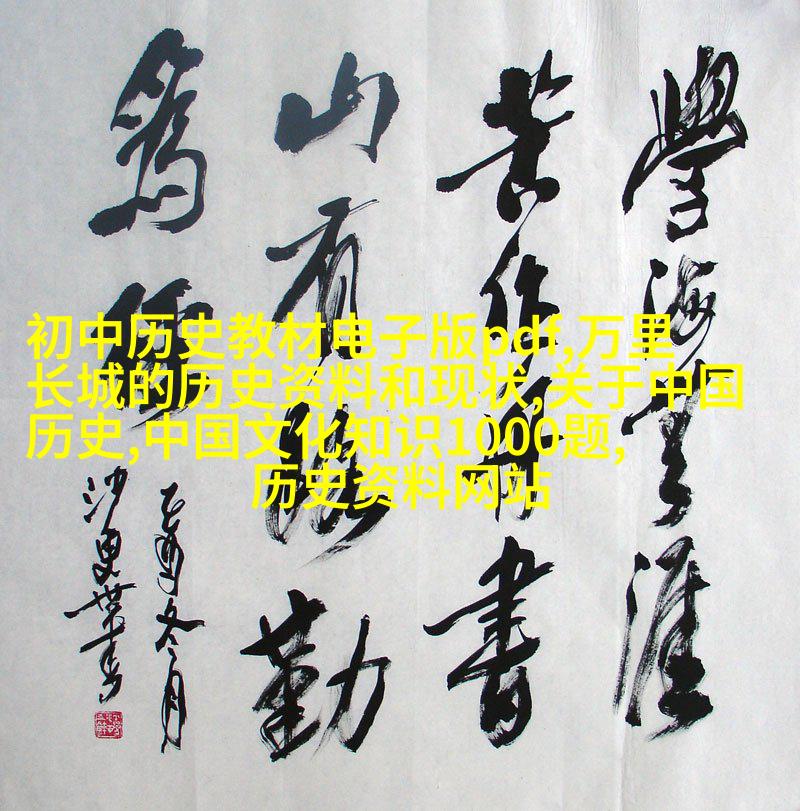 初中历史教材电子版pdf,万里
长城的历史资料和现状,关于中国
历史,中国文化知识1000题,
历史资料网站
學海無涯
苦作舟書
山有路勤
為徑
乙酉冬月